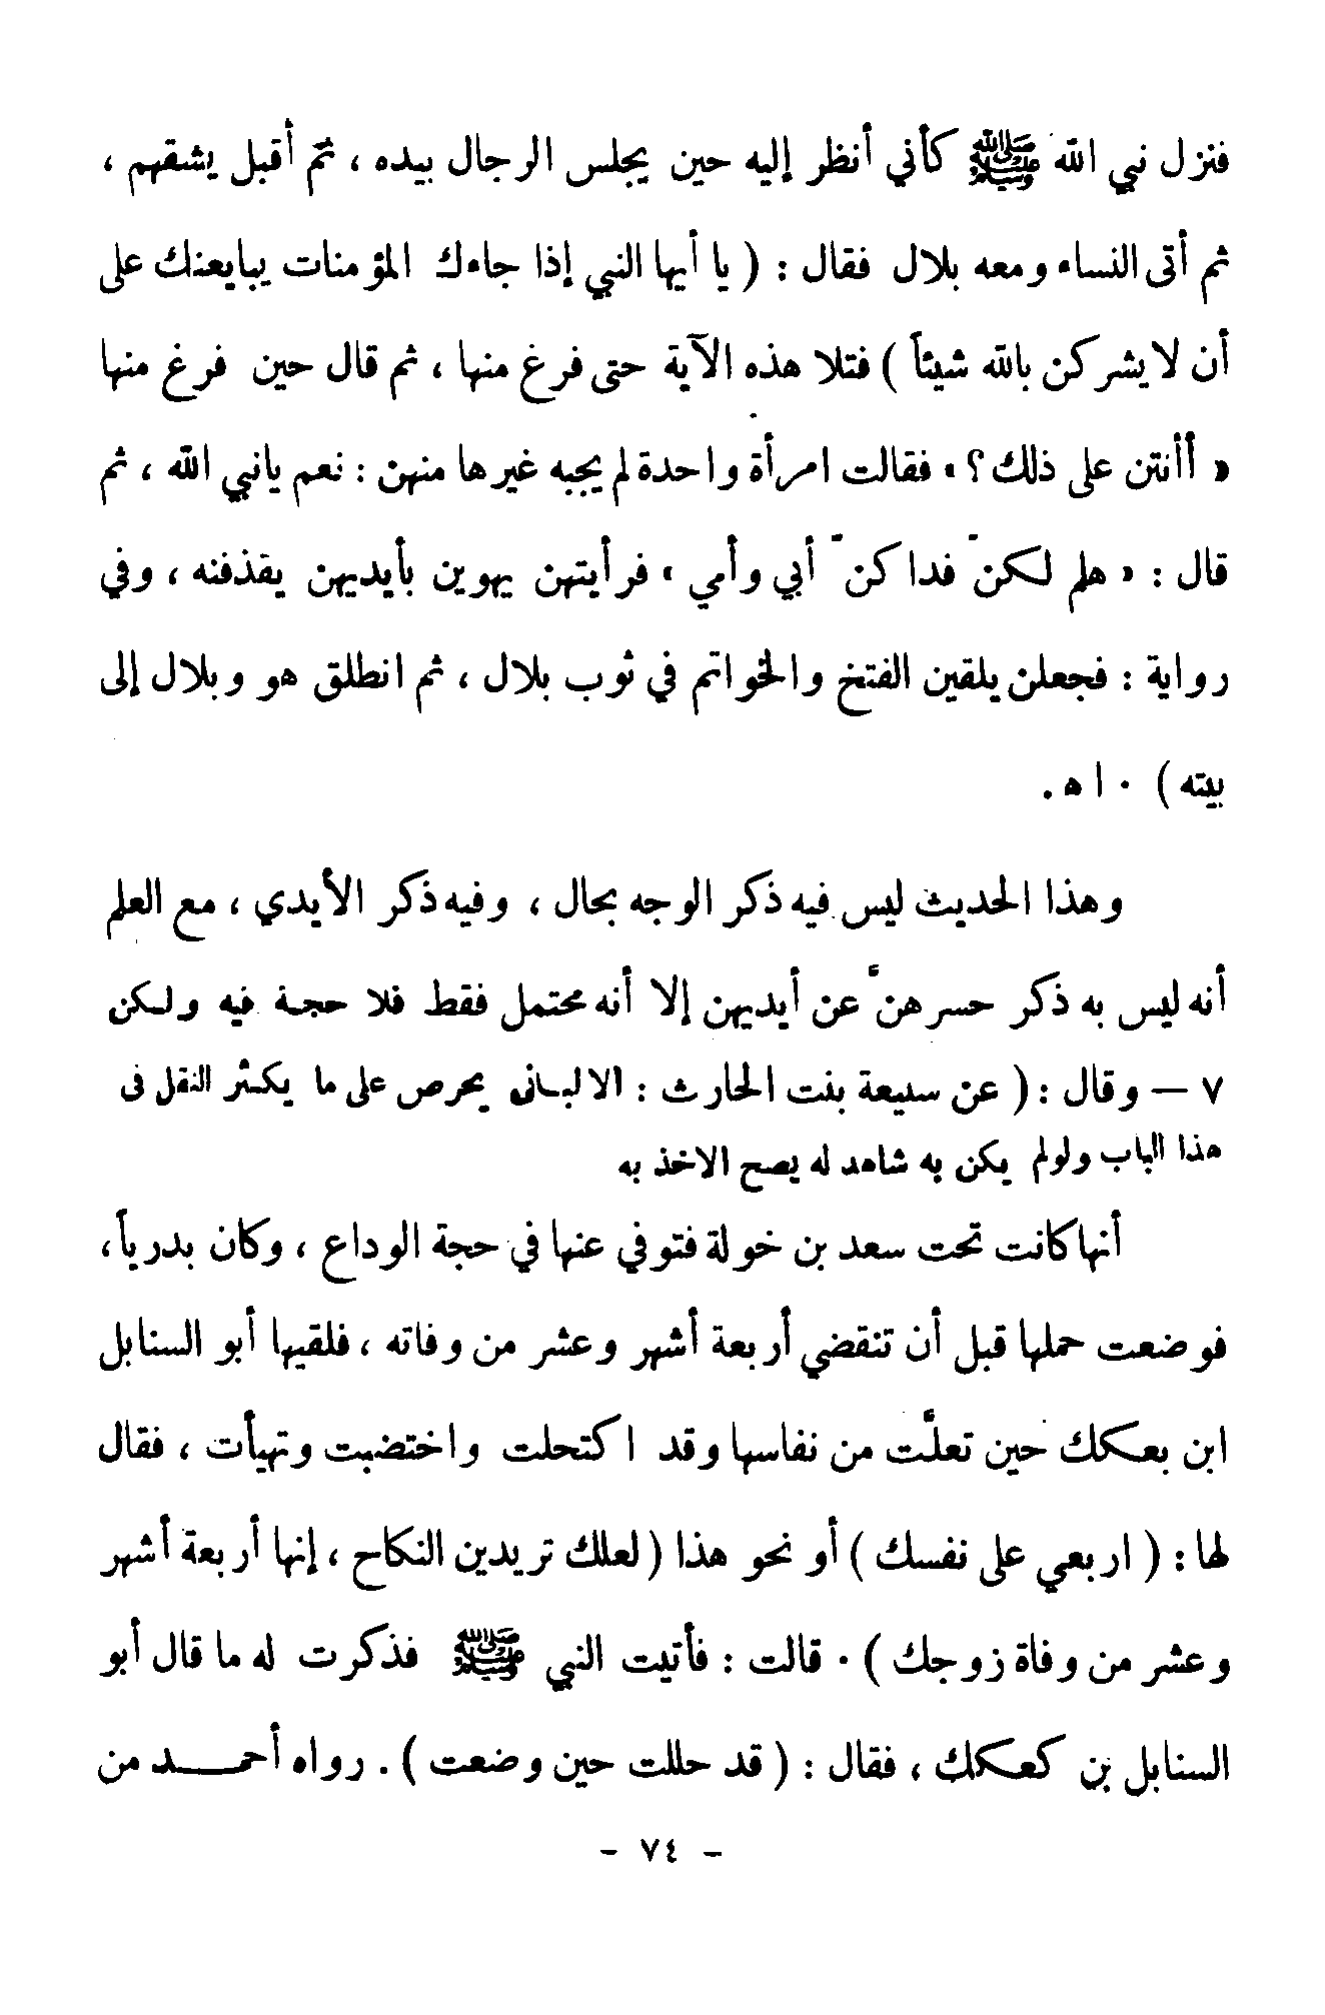 فنزل نبي الله ﷺ كأني أنظر إليه حين يجلس الرجال بيده ، ثم أقبل يشقهم ،
ثم أتى النساء ومعه بلال فقال : ( يا أيها النبي إذا جاءك المؤمنات يبايعنك على
أن لا يشركن بالله شيئاً ) فتلا هذه الآية حتى فرغ منها ، ثم قال حين فرغ منها
« أأنتن على ذلك ؟ » فقالت امرأة واحدة لم يجبه غيرها منهن : نعم يانبي الله ، ثم
قال : « هلم لكنّ فداكنّ أبي وأمي » فرأيتهن يهوين بأيديهن يقذفنه ، وفي
رواية : فجعلن يلقين الفتخ والخواتم في ثوب بلال ، ثم انطلق هو وبلال إلى
بيته ) ٠ اه .
وهذا الحديث ليس فيه ذكر الوجه بحال ، وفيه ذكر الأيدي ، مع العلم
أنه ليس به ذكر حسرهنَّ عن أيديهن إلا أنه محتمل فقط فلا حجة فيه ولكن
٧ — وقال : ( عن سبيعة بنت الحارث : الالبانى يحرص على ما يكثر النقل فى
هذا الباب ولولم يكن به شاهد له يصح الاخذ به
أنها كانت تحت سعد بن خولة فتوفي عنها في حجة الوداع ، وكان بدرياً ،
فوضعت حملها قبل أن تنقضي أربعة أشهر وعشر من وفاته ، فلقيها أبو السنابل
ابن بعكك حين تعلَّت من نفاسها وقد اكتحلت واختضبت وتهيأت ، فقال
لها : ( اربعي على نفسك ) أو نحو هذا ( لعلك تريدين النكاح ، إنها أربعة أشهر
وعشر من وفاة زوجك ) ٠ قالت : فأتيت النبي ﷺ فذكرت له ما قال أبو
السنابل بن كعكك ، فقال : ( قد حللت حين وضعت ) . رواه أحمـــد من
- ٧٤ -